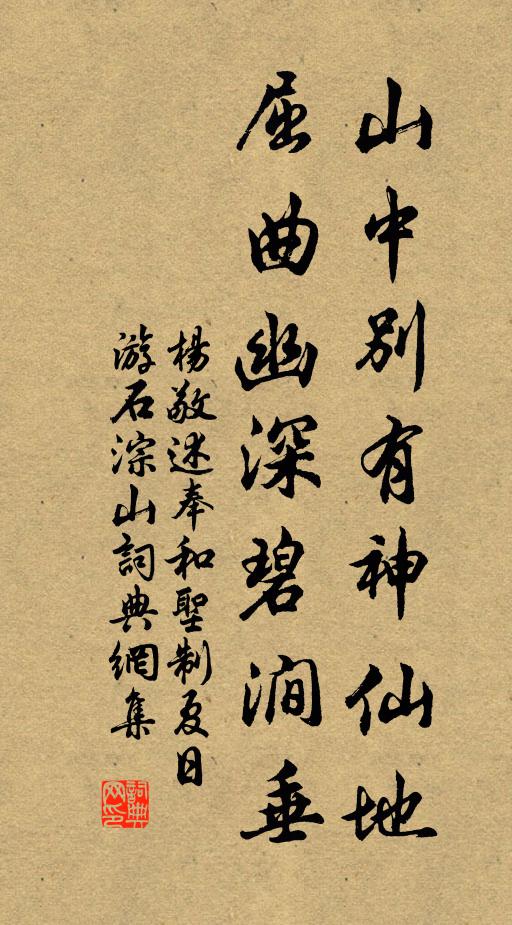 山中別有神仙地
屈曲幽深碧澗垂
楊敬述奉和聖制夏日
游石淙山詞典網集
詞典
网印